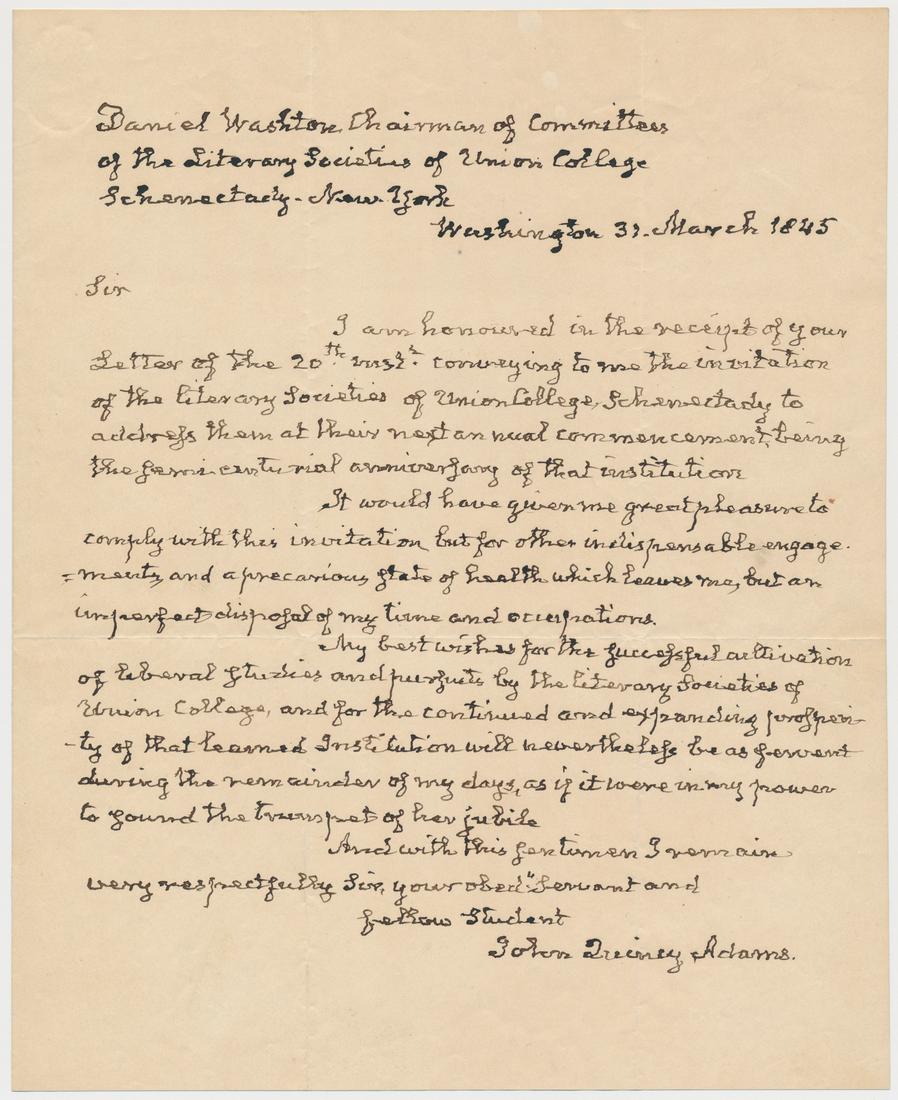 Daniel Washton, Chairman of Committees
of the Literary Societies of Union College
Schenectady - New York
Washington 31. March 1845
Sir
I am honoured in the receipt of your
Letter of the 20th inst. conveying to me the invitation
of the literary Societies of Union College, Schenectady to
address them at their next annual commencement, being
the semi-centurial anniversary of that institution
It would have given me great pleasure to
comply with this invitation, but for other indispensable engage-
=ments, and a precarious state of health which leaves me, but an
imperfect disposal of my time and occupations.
My best wishes for the successful cultivation
of liberal studies and pursuits by the literary Societies of
Union College, and for the continued and expanding prosperi-
-ty of that learned Institution will nevertheless be as fervent
during the remainder of my days, as if it were in my power
to sound the trumpet of her jubile
And with this sentimen I remain
very respectfully Sir, your obedt Servant and
fellow Student
John Quincy Adams.